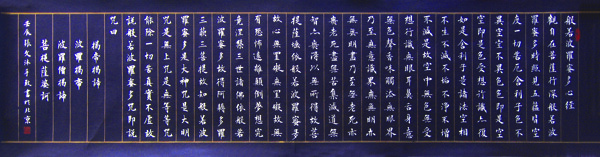 般若波羅蜜多心經
觀自在菩薩行深般若波
羅蜜多時照見五蘊皆空
度一切苦厄舍利子色不
異空空不異色色即是空
空即是色受想行識亦復
如是舍利子是諸法空相
不生不滅不垢不淨不增
不減是故空中無色無受
想行識無眼耳鼻舌身意
無色聲香味觸法無眼界
乃至無意識界無無明亦
無無明盡乃至無老死亦
無老死盡無苦集滅道無
智亦無得以無所得故菩
提薩埵依般若波羅蜜多
故心無罣礙無罣礙故無
有恐怖遠離顛倒夢想究
竟涅槃三世諸佛依般若
波羅蜜多故得阿耨多羅
三藐三菩提故知般若波
羅蜜多是大神咒是大明
咒是無上咒是無等等咒
能除一切苦真實不虛故
說般若波羅蜜多咒即說
咒曰
揭諦揭諦
波羅揭諦
波羅僧揭諦
菩提薩婆訶
壬辰 書於北京